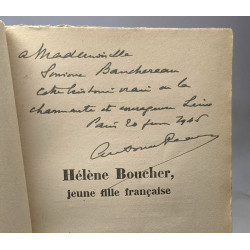 a Mademoiselle
Simone Banchereau
cette histoire vraie de la
charmante et courageuse
Paris 20 juin
Hélène Boucher,
jeune fille française